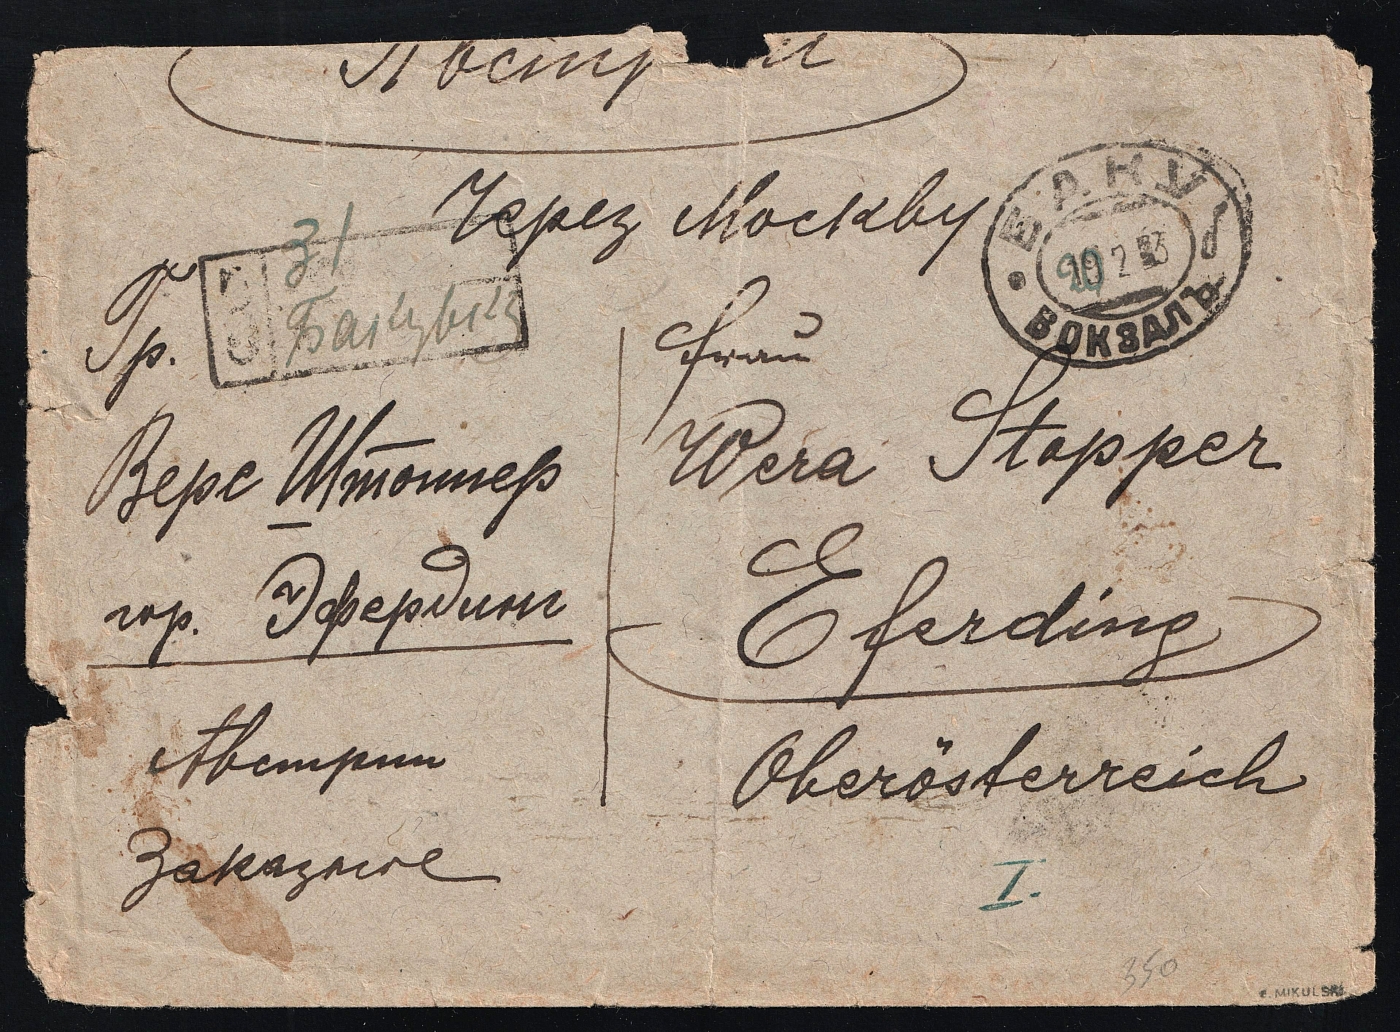 Австрия
Через Москву
БАКУ
б
19 2 23
ВОКЗАЛЪ
31
Гр.
Вере Штоппер
гор. Эфердинг
Австрии
Заказное
Frau
Wera Stopper
Eferding
Oberösterreich
I.
350
MIKULSKI